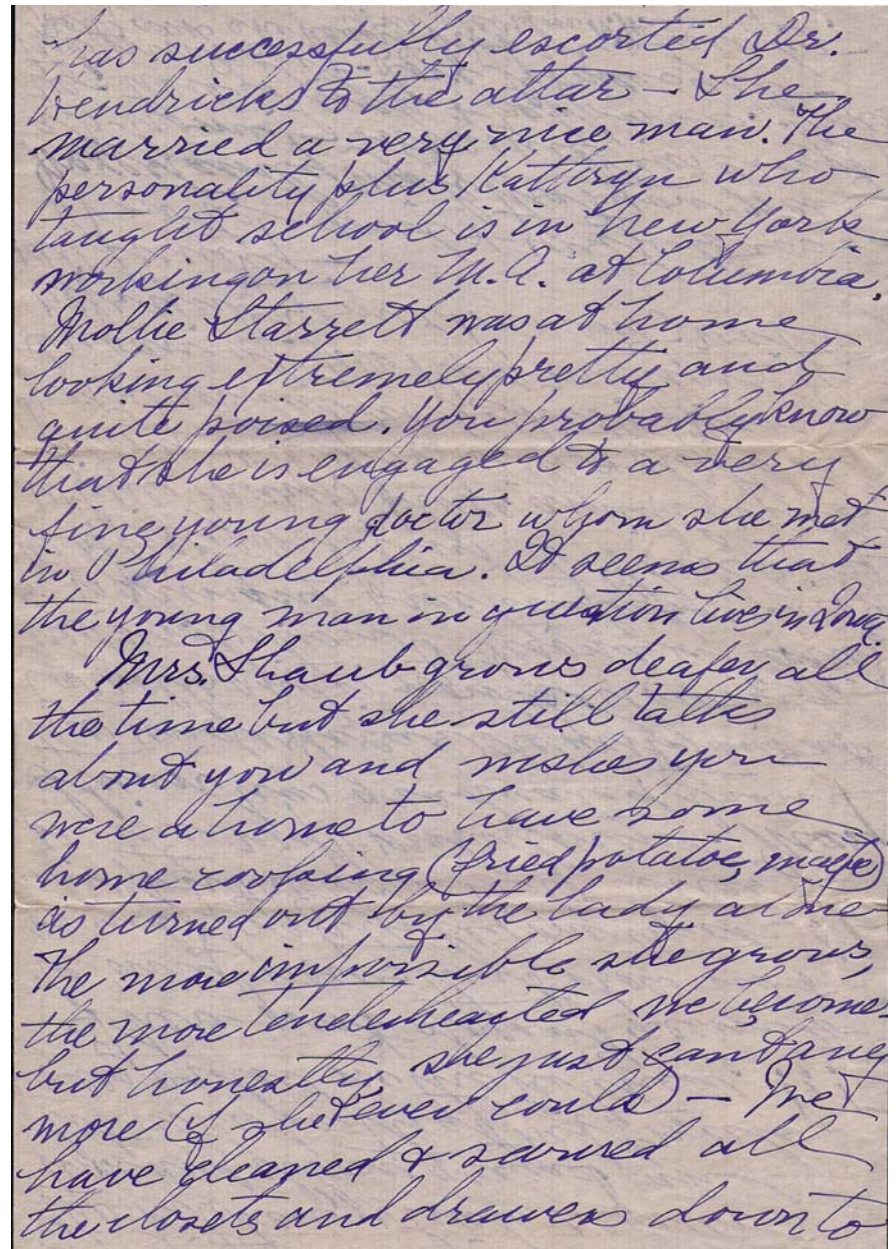 has successfully escorted Dr.
Hendricks to the altar – She
married a very nice man. The
personality plus Kathryn who
taught school is in New York
working on her M.A. at Columbia.
Mollie Starrett was at home
looking extremely pretty and
quite poised. You probably know
that she is engaged to a very
fine young doctor whom she met
in Philadelphia. It seems that
the young man in question lives in Iowa.
Mrs. Shaub grows deafer all
the time but she still talks
about you and wishes you
were at home to have some
home cooking (fried potatoes, maybe)
as turned out by the lady alone
The more impossible she grows,
the more tenderhearted we become.
but honestly she just can't any
more (if she ever could) – We
have cleaned & scoured all
the closets and drawers down to